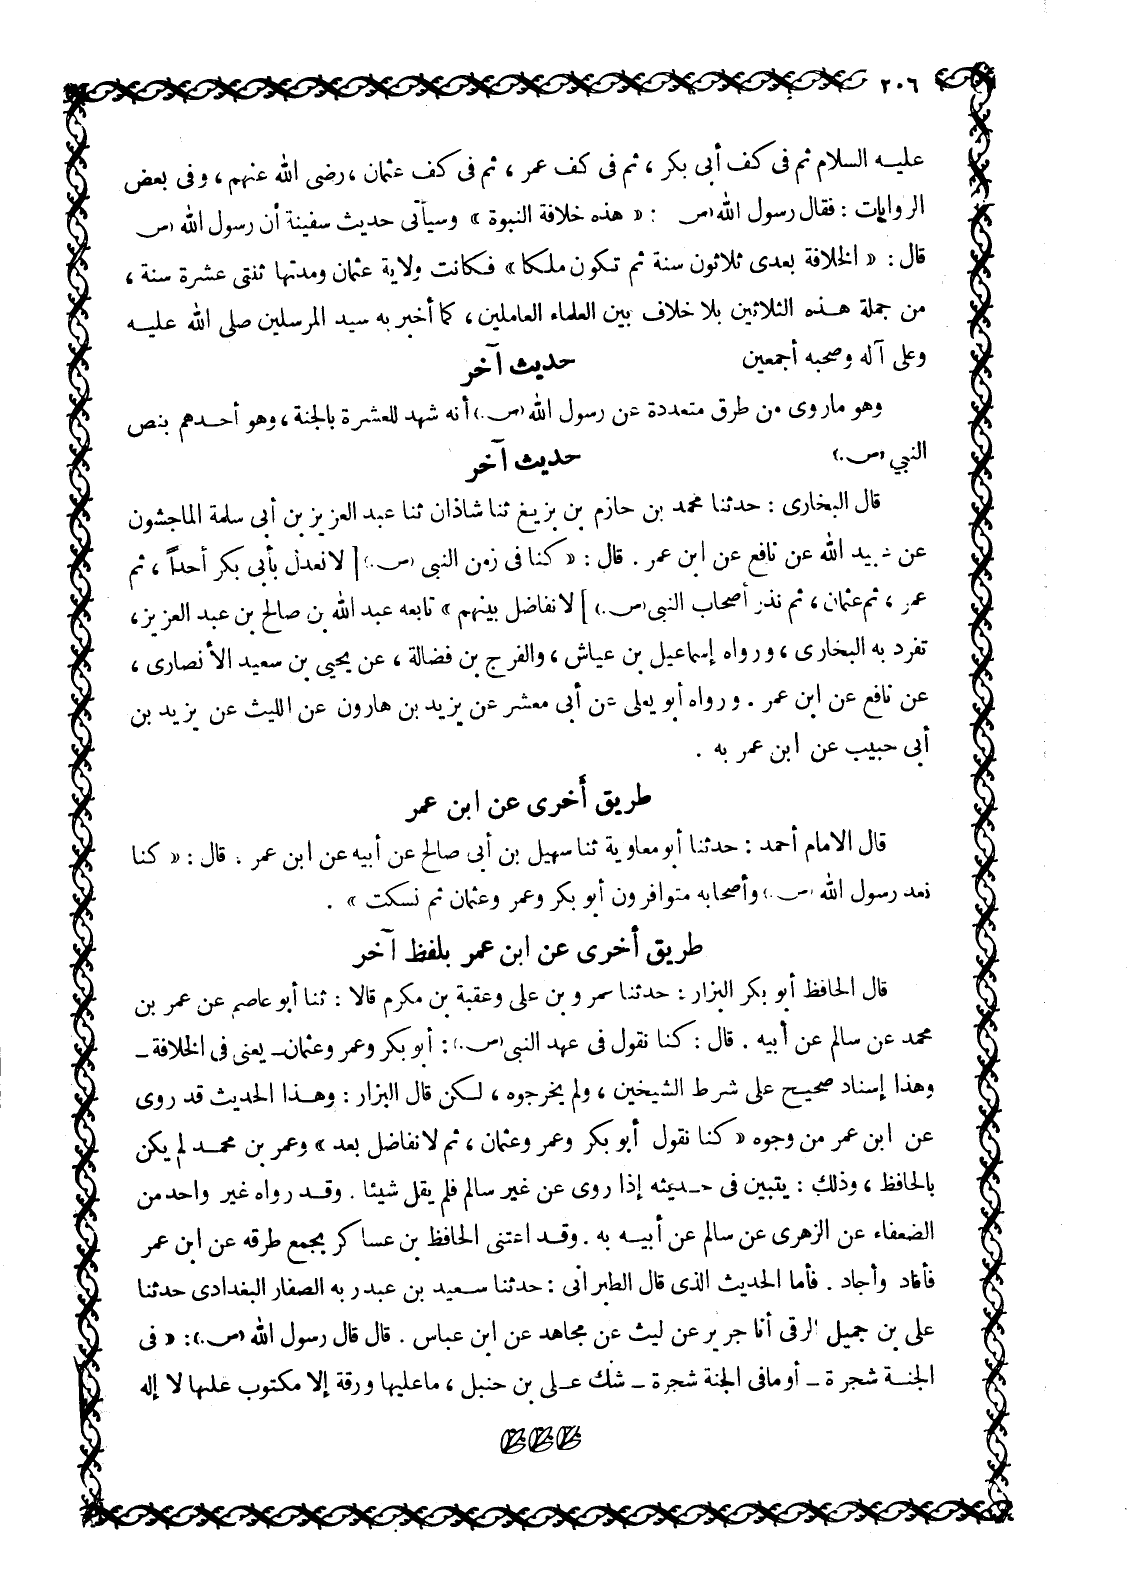 ٢٠٦
عليه السلام ثم فى كف أبى بكر ، ثم فى كف عمر ، ثم فى كف عثمان ، رضى الله عنهم ، وفى بعض
الروايات : فقال رسول الله (ص) : « هذه خلافة النبوة » وسيأتى حديث سفينة أن رسول الله (ص)
قال : « الخلافة بعدى ثلاثون سنة ثم تكون ملكا » فكانت ولاية عثمان ومدتها ثنتى عشرة سنة ،
من جملة هذه الثلاثين بلا خلاف بين العلماء العاملين ، كما أخبر به سيد المرسلين صلى الله عليه
وعلى آله وصحبه أجمعين
حديث آخر
وهو ما روى من طرق متعددة عن رسول الله (ص.) أنه شهد للعشرة بالجنة ، وهو أحدهم بنص
النبي (ص.)
حديث آخر
قال البخارى : حدثنا محمد بن حازم بن بزيغ ثنا شاذان ثنا عبد العزيز بن أبى سلمة الماجشون
عن عبيد الله عن نافع عن ابن عمر . قال : « كنا فى زمن النبى (ص.) [ لا نعدل بأبى بكر أحداً ، ثم
عمر ، ثم عثمان ، ثم نذر أصحاب النبى (ص.) ] لا نفاضل بينهم » تابعه عبد الله بن صالح بن عبد العزيز ،
تفرد به البخارى ، ورواه إسماعيل بن عياش ، والفرج بن فضالة ، عن يحيى بن سعيد الأنصارى ،
عن نافع عن ابن عمر . ورواه أبو يعلى عن أبى معشر عن يزيد بن هارون عن الليث عن يزيد بن
أبى حبيب عن ابن عمر به .
طريق أخرى عن ابن عمر
قال الامام أحمد : حدثنا أبو معاوية ثنا سهيل بن أبى صالح عن أبيه عن ابن عمر . قال : « كنا
نعد رسول الله (ص.) وأصحابه متوافرون أبو بكر وعمر وعثمان ثم نسكت » .
طريق أخرى عن ابن عمر بلفظ آخر
قال الحافظ أبو بكر البزار : حدثنا عمرو بن على وعقبة بن مكرم قالا : ثنا أبو عاصم عن عمر بن
محمد عن سالم عن أبيه . قال : كنا نقول فى عهد النبى (ص.) : أبو بكر وعمر وعثمان ـ يعنى فى الخلافة ـ
وهذا إسناد صحيح على شرط الشيخين ، ولم يخرجوه ، لكن قال البزار : وهذا الحديث قد روى
عن ابن عمر من وجوه « كنا نقول أبو بكر وعمر وعثمان ، ثم لا نفاضل بعد » وعمر بن محمد لم يكن
بالحافظ ، وذلك : يتبين فى حديثه إذا روى عن غير سالم فلم يقل شيئا . وقد رواه غير واحد من
الضعفاء عن الزهرى عن سالم عن أبيه به . وقد اعتنى الحافظ بن عساكر بجمع طرقه عن ابن عمر
فأفاد وأجاد . فأما الحديث الذى قال الطبرانى : حدثنا سعيد بن عبد ربه الصفار البغدادى حدثنا
على بن جميل الرقى أنا جرير عن ليث عن مجاهد عن ابن عباس . قال قال رسول الله (ص.) : « فى
الجنة شجرة ـ أو مافى الجنة شجرة ـ شك على بن حنبل ، ما عليها ورقة إلا مكتوب عليها لا إله